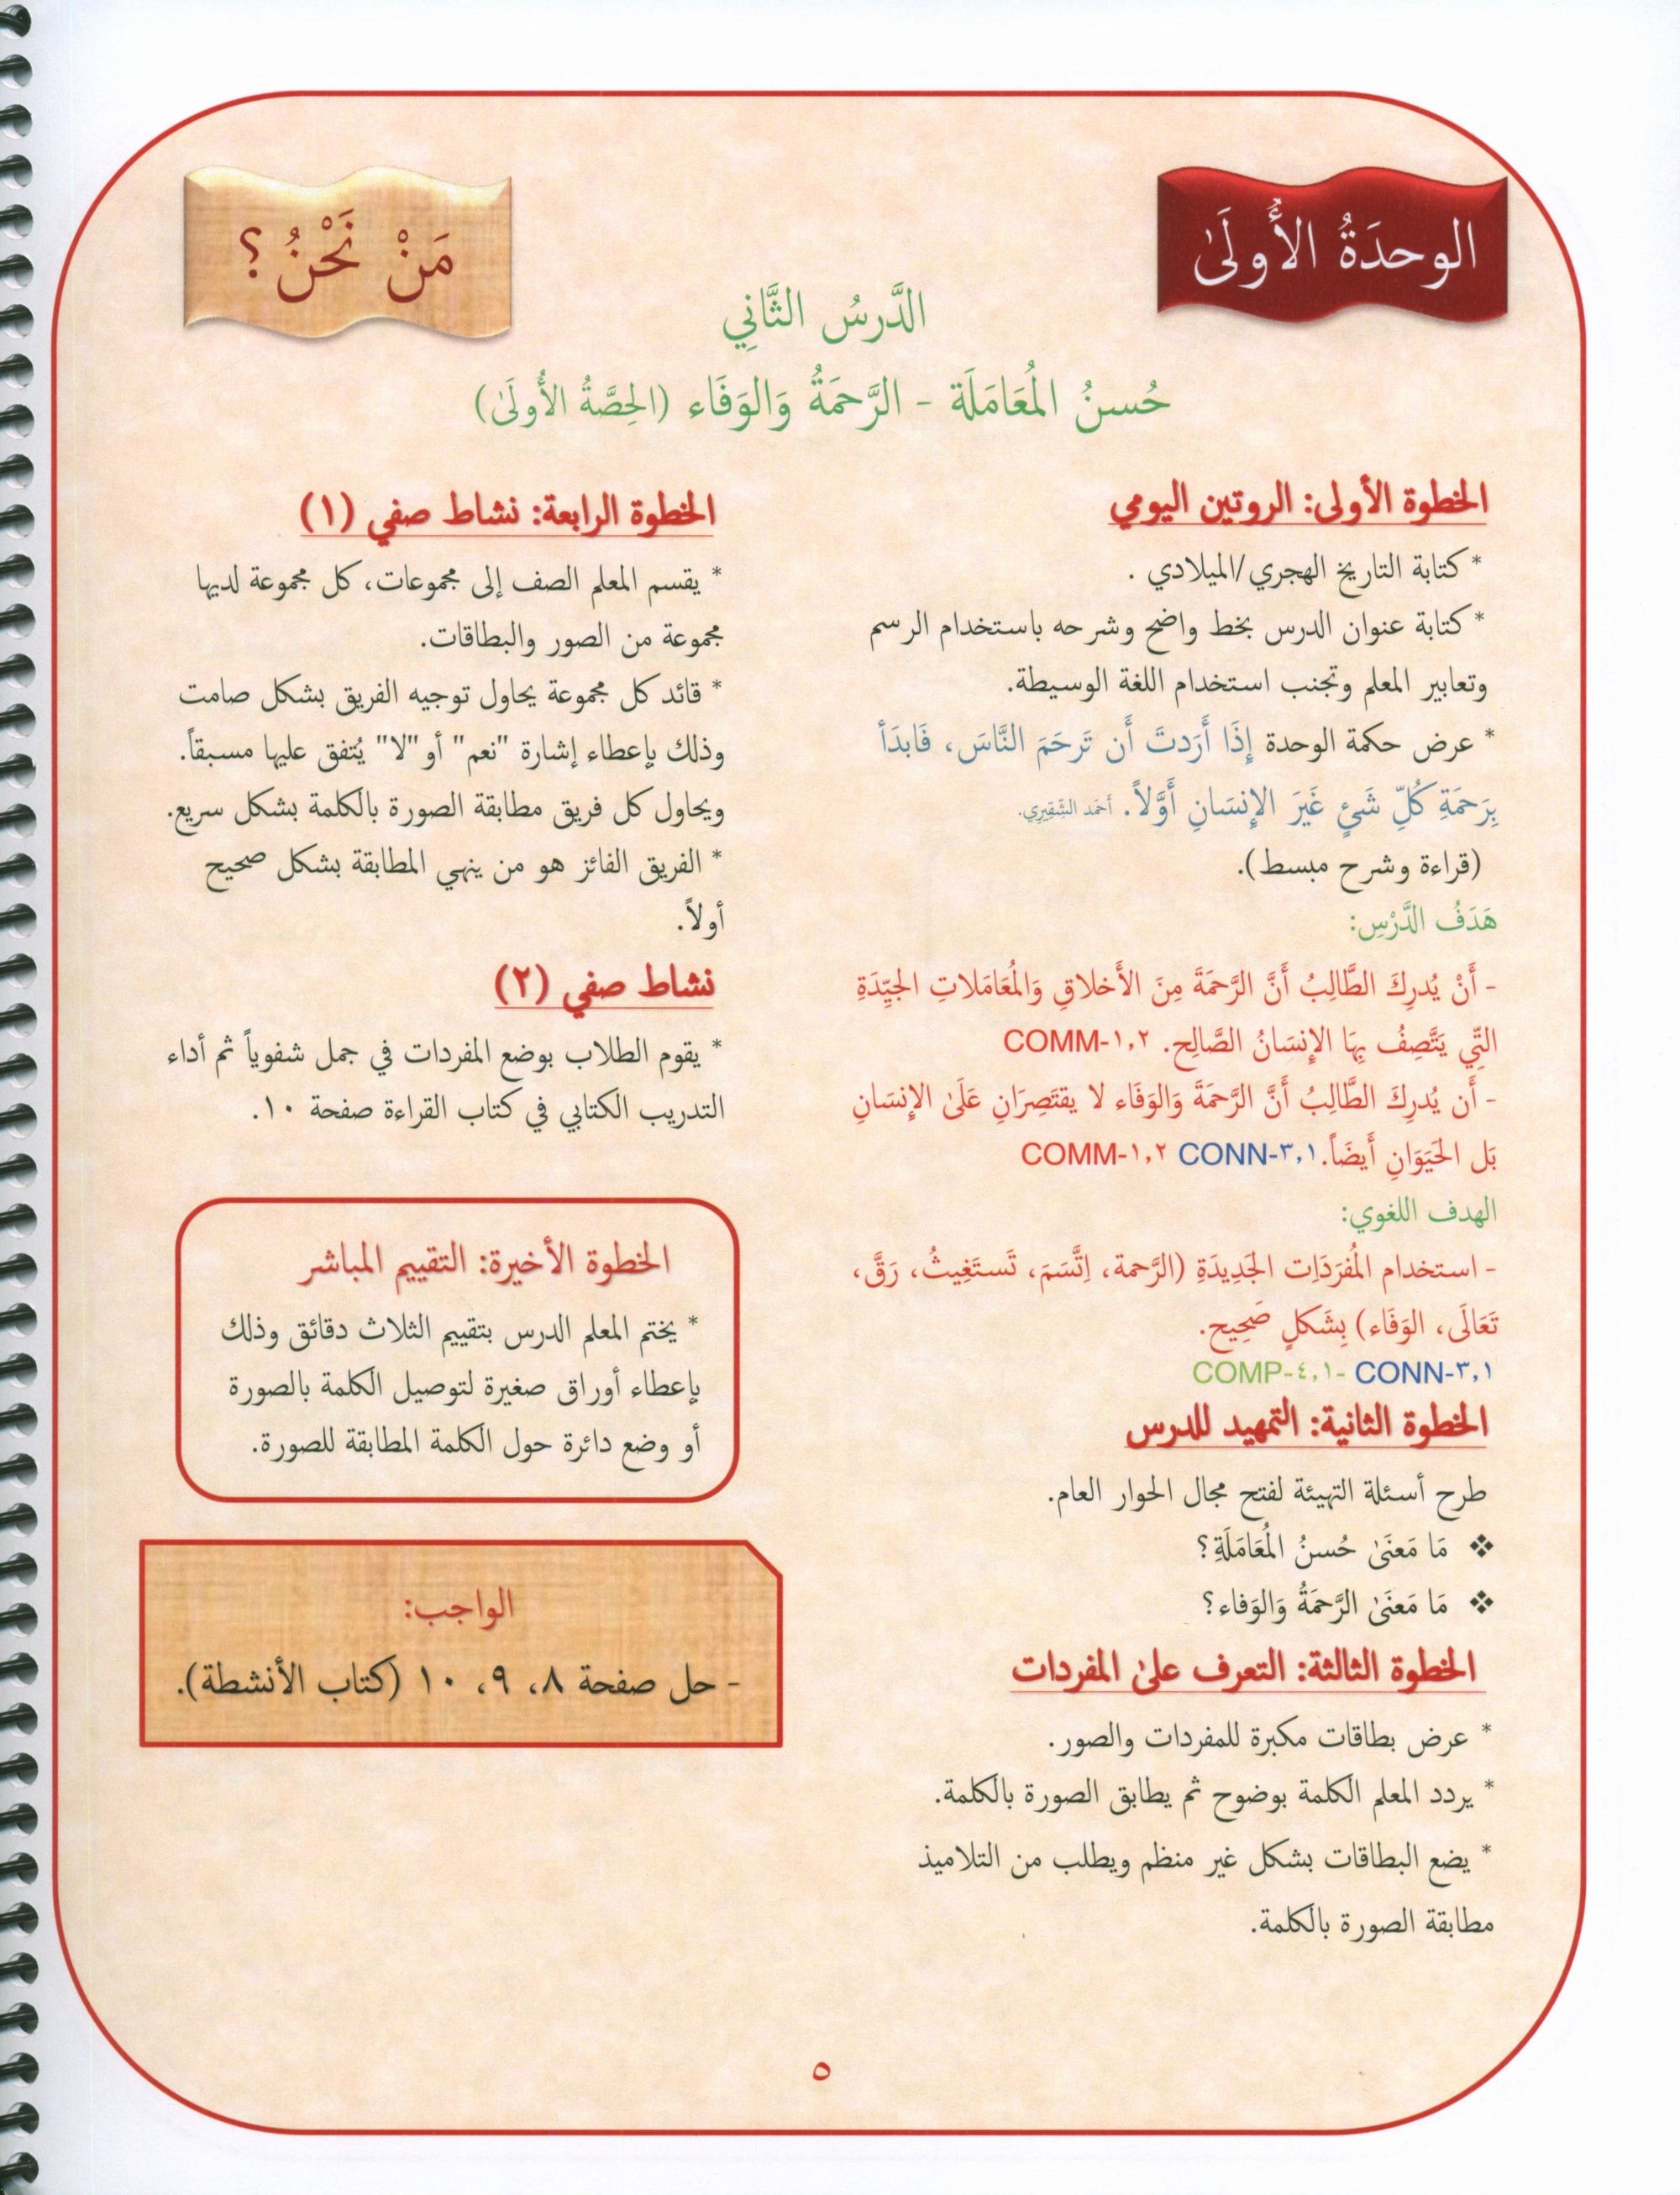 الوحدَةُ الأُولَىٰ
مَنْ نَحْنُ؟
الدَّرسُ الثَّانِي
حُسنُ المُعَامَلَة - الرَّحمَةُ وَالوَفَاء (الحِصَّةُ الأُولَىٰ)
الخطوة الأولى: الروتين اليومي
* كتابة التاريخ الهجري/الميلادي .
* كتابة عنوان الدرس بخط واضح وشرحه باستخدام الرسم
وتعابير المعلم وتجنب استخدام اللغة الوسيطة.
* عرض حكمة الوحدة إِذَا أَرَدتَ أَن تَرحَمَ النَّاسَ، فَابدَأ
بِرَحمَةِ كُلِّ شَئٍ غَيرَ الإِنسَانِ أَوَّلاً. أحمَد الشّقِيرِي.
(قراءة وشرح مبسط).
هَدَفُ الدَّرْسِ:
- أَنْ يُدرِكَ الطَّالِبُ أَنَّ الرَّحمَةَ مِنَ الأَخلاقِ وَالمُعَامَلاتِ الجَيِّدَةِ
التّي يَتَّصِفُ بِهَا الإِنسَانُ الصَّالِح. COMM-١,٢
- أَن يُدرِكَ الطَّالِبُ أَنَّ الرَّحمَةَ وَالوَفَاء لا يقتَصِرَانِ عَلَىٰ الإِنسَانِ
بَل الحَيَوَانِ أَيضَاً. CONN-٣,١ COMM-١,٢
الهدف اللغوي:
- استخدام المُفرَدَاِت الجَدِيدَةِ (الرَّحمة، اِتَّسَمَ، تَستَغِيثُ، رَقَّ،
تَعَالَى، الوَفَاء) بِشَكلٍ صَحِيح.
COMP-٤,١- CONN-٣,١
الخطوة الثانية: التمهيد للدرس
طرح أسئلة التهيئة لفتح مجال الحوار العام.
❖ مَا مَعنَىٰ حُسنُ المُعَامَلَةِ؟
❖ مَا مَعنَىٰ الرَّحمَةُ وَالوَفاء؟
الخطوة الثالثة: التعرف علىٰ المفردات
* عرض بطاقات مكبرة للمفردات والصور.
* يردد المعلم الكلمة بوضوح ثم يطابق الصورة بالكلمة.
* يضع البطاقات بشكل غير منظم ويطلب من التلاميذ
مطابقة الصورة بالكلمة.
الخطوة الرابعة: نشاط صفي (١)
* يقسم المعلم الصف إلى مجموعات، كل مجموعة لديها
مجموعة من الصور والبطاقات.
* قائد كل مجموعة يحاول توجيه الفريق بشكل صامت
وذلك بإعطاء إشارة "نعم" أو "لا" يُتفق عليها مسبقاً.
ويحاول كل فريق مطابقة الصورة بالكلمة بشكل سريع.
* الفريق الفائز هو من ينهي المطابقة بشكل صحيح
أولاً.
نشاط صفي (٢)
* يقوم الطلاب بوضع المفردات في جمل شفوياً ثم أداء
التدريب الكتابي في كتاب القراءة صفحة ١٠.
الخطوة الأخيرة: التقييم المباشر
* يختم المعلم الدرس بتقييم الثلاث دقائق وذلك
بإعطاء أوراق صغيرة لتوصيل الكلمة بالصورة
أو وضع دائرة حول الكلمة المطابقة للصورة.
الواجب:
- حل صفحة ٨، ٩، ١٠ (كتاب الأنشطة).
٥